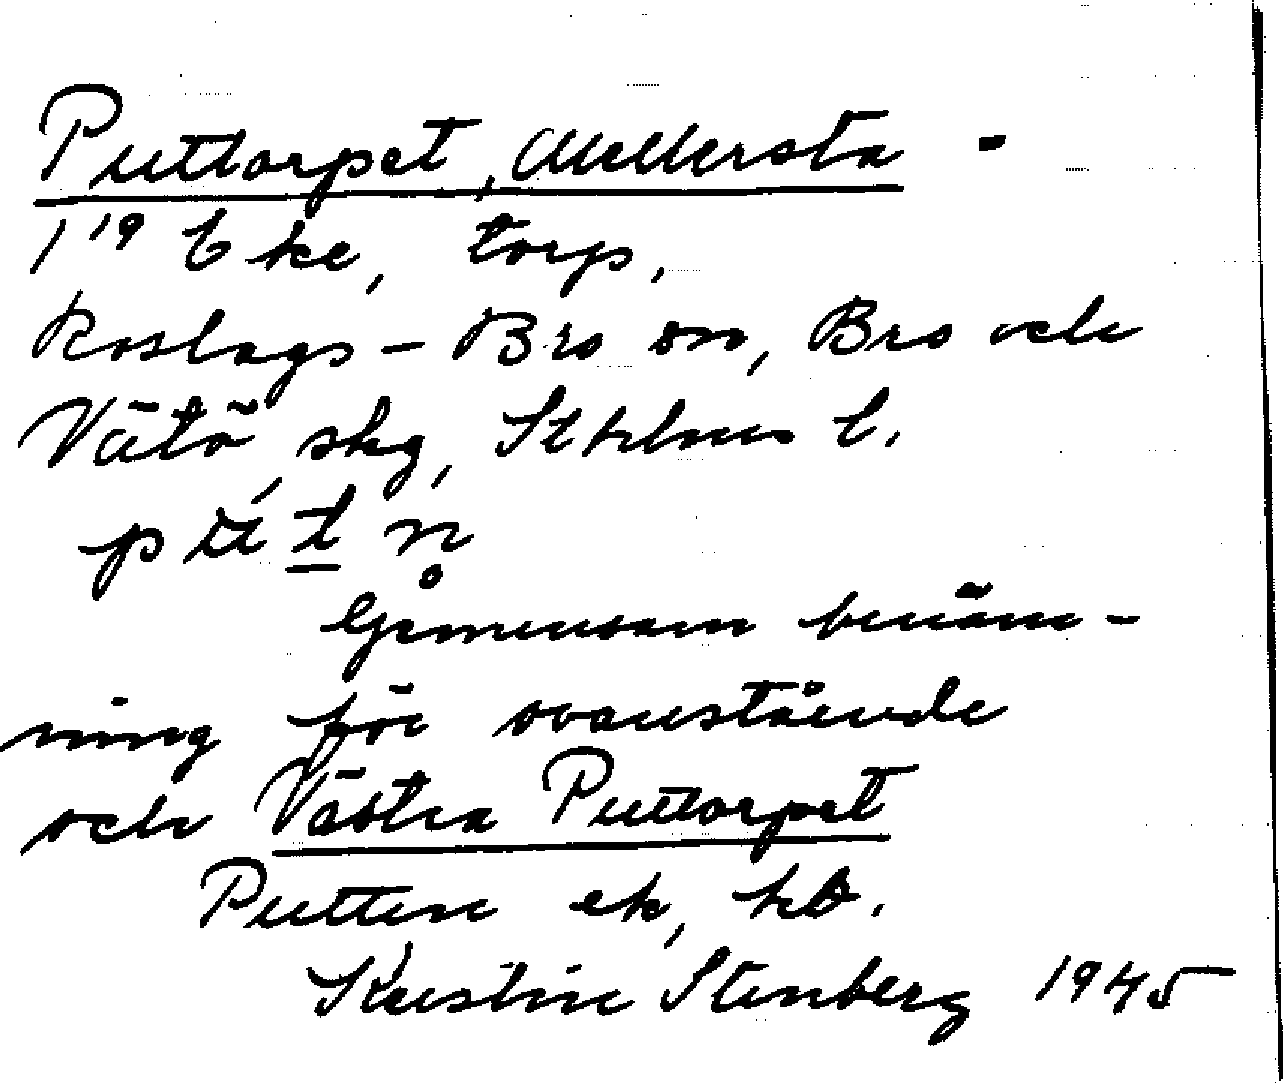 Puttorpet, Mellersta -
1/19 Eke, torp,
Roslags-Bro sn, Bro och
Vätö skg, Sthlms l.
Gemensam benäm-
ning för ovanstående
och Västra Puttorpet
Putten ek, kb.
Kerstin Stenberg 1945